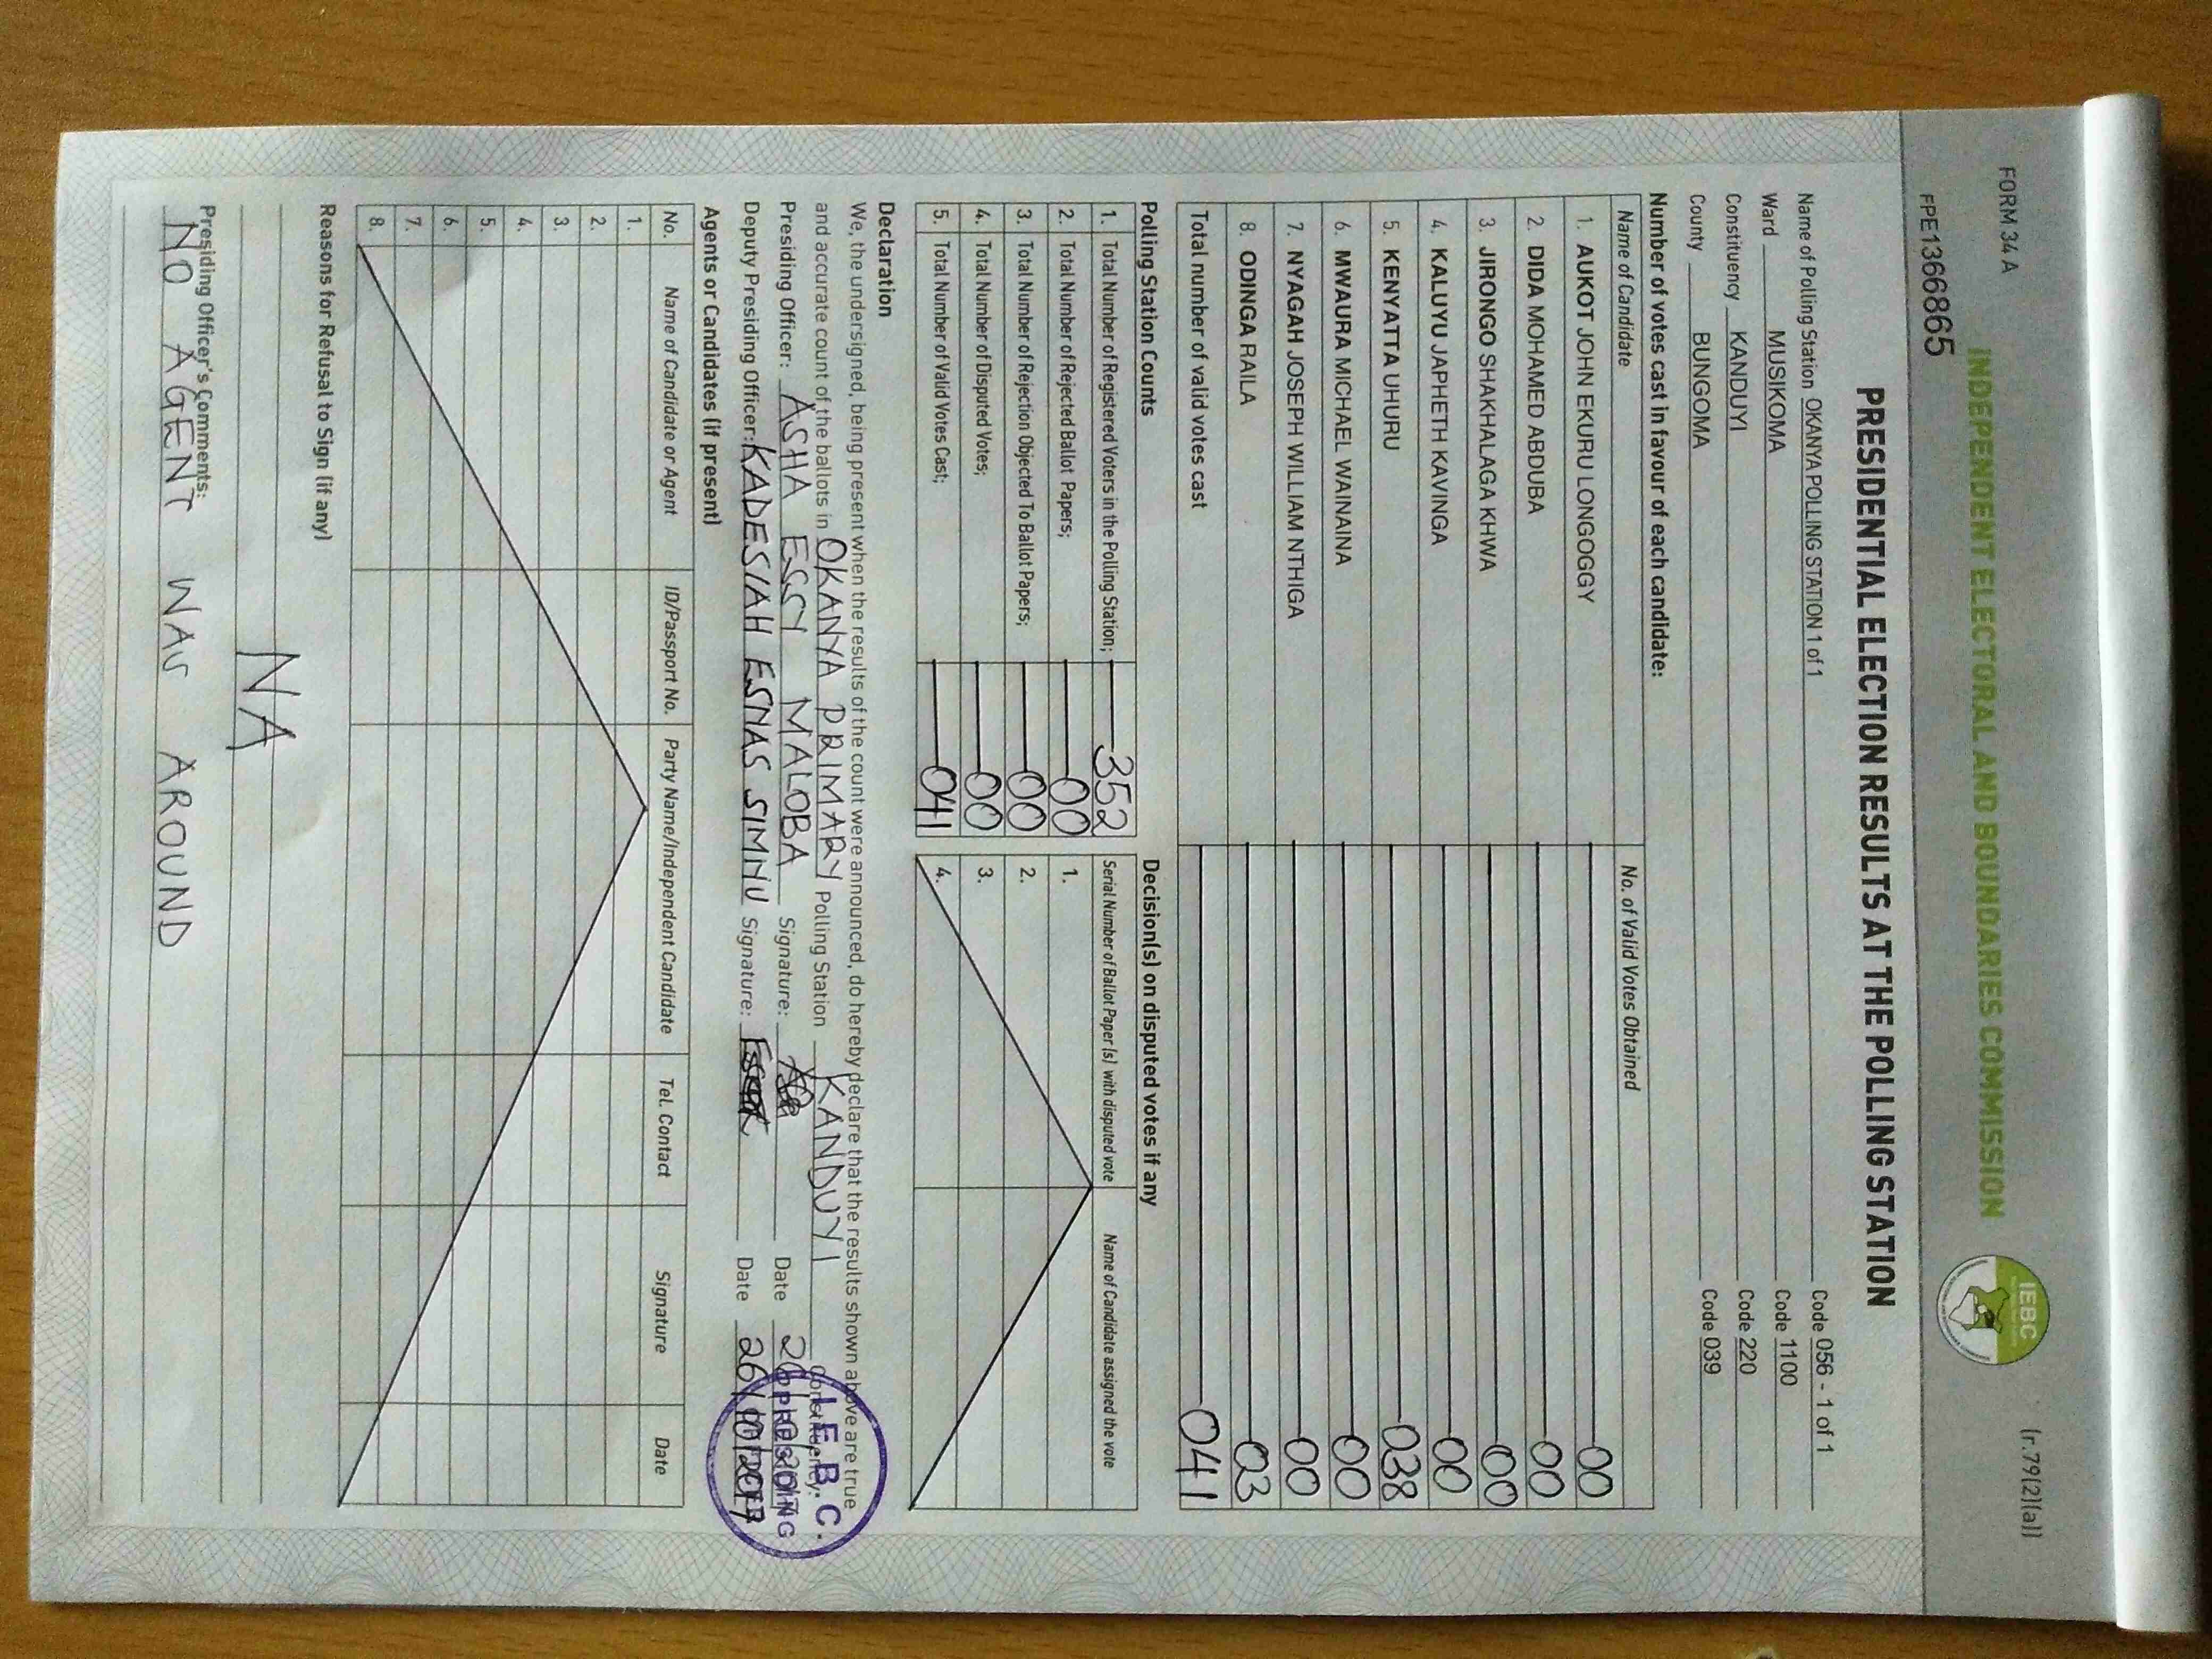 FORM 34 A
(r.79(2)(a))
INDEPENDENT ELECTORAL AND BOUNDARIES COMMISSION
IEBC
FPE136865
PRESIDENTIAL ELECTION RESULTS AT THE POLLING STATION
Name of Polling Station OKANYA POLLING STATION 1 of 1 Code 056 - 1 of 1
Ward MUSIKOMA Code 1100
Constituency KANDUYI Code 220
County BUNGOMA Code 039
Number of votes cast in favour of each candidate:
Name of Candidate No. of Valid Votes Obtained
1. AUKOT JOHN EKURU LONGOGGY 00
2. DIDA MOHAMED ABDUBA 00
3. JIRONGO SHAKHALAGA KHWA 00
4. KALUYU JAPHETH KAVINGA 00
5. KENYATTA UHURU 038
6. MWAURA MICHAEL WAINAINA 00
7. NYAGAH JOSEPH WILLIAM NTHIGA 00
8. ODINGA RAILA 03
Total number of valid votes cast 041
Polling Station Counts
1. Total Number of Registered Voters in the Polling Station; 352
2. Total Number of Rejected Ballot Papers; 00
3. Total Number of Rejection Objected To Ballot Papers; 00
4. Total Number of Disputed Votes; 00
5. Total Number of Valid Votes Cast; 041
Decision(s) on disputed votes if any
Serial Number of Ballot Paper (s) with disputed vote Name of Candidate assigned the vote
1.
2.
3.
4.
Declaration
We, the undersigned, being present when the results of the count were announced, do hereby declare that the results shown above are true
and accurate count of the ballots in OKANYA PRIMARY Polling Station KANDUYI Constituency:
Presiding Officer: ASHA ESSY MALOBA Signature: Date
Deputy Presiding Officer: KADESIAH ESNAS SIMIYU Signature: Date 26/10/2017
I.E.B.C.
PRESIDING
Agents or Candidates (if present)
No. Name of Candidate or Agent ID/Passport No. Party Name/Independent Candidate Tel. Contact Signature Date
1.
2.
3.
4.
5.
6.
7.
8.
Reasons for Refusal to Sign (if any)
NA
Presiding Officer's Comments:
NO AGENT WAS AROUND